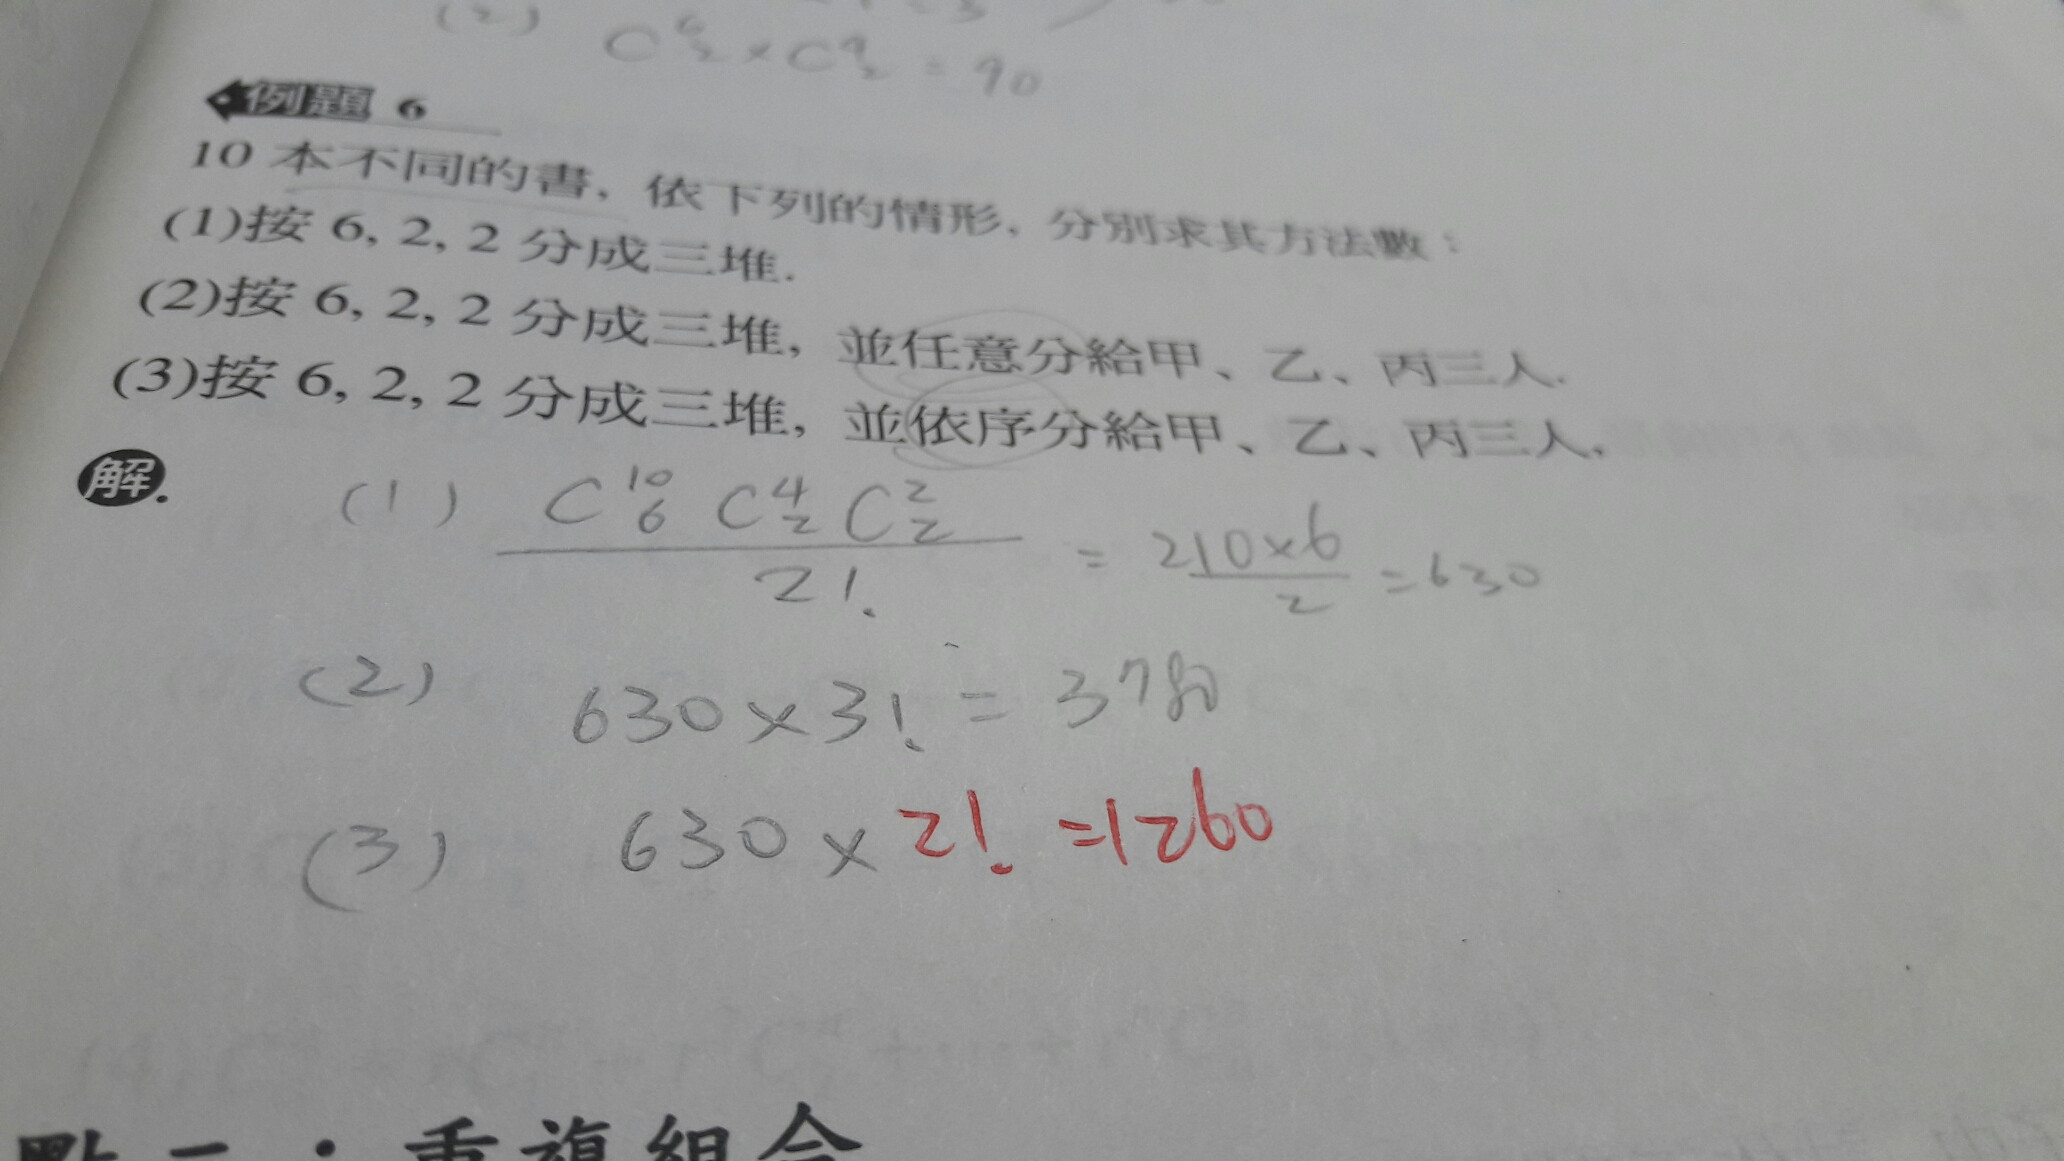 (2) C⁶₂ × C⁴₂ = 90
例題 6
10 本不同的書, 依下列的情形, 分別求其方法數:
(1)按 6, 2, 2 分成三堆.
(2)按 6, 2, 2 分成三堆, 並任意分給甲、乙、丙三人.
(3)按 6, 2, 2 分成三堆, 並依序分給甲、乙、丙三人.
解.
(1) C¹⁰₆ C⁴₂ C²₂ / 2! = 210×6 / 2 = 630
(2) 630 × 3! = 3780
(3) 630 × 2! = 1260
重複組合